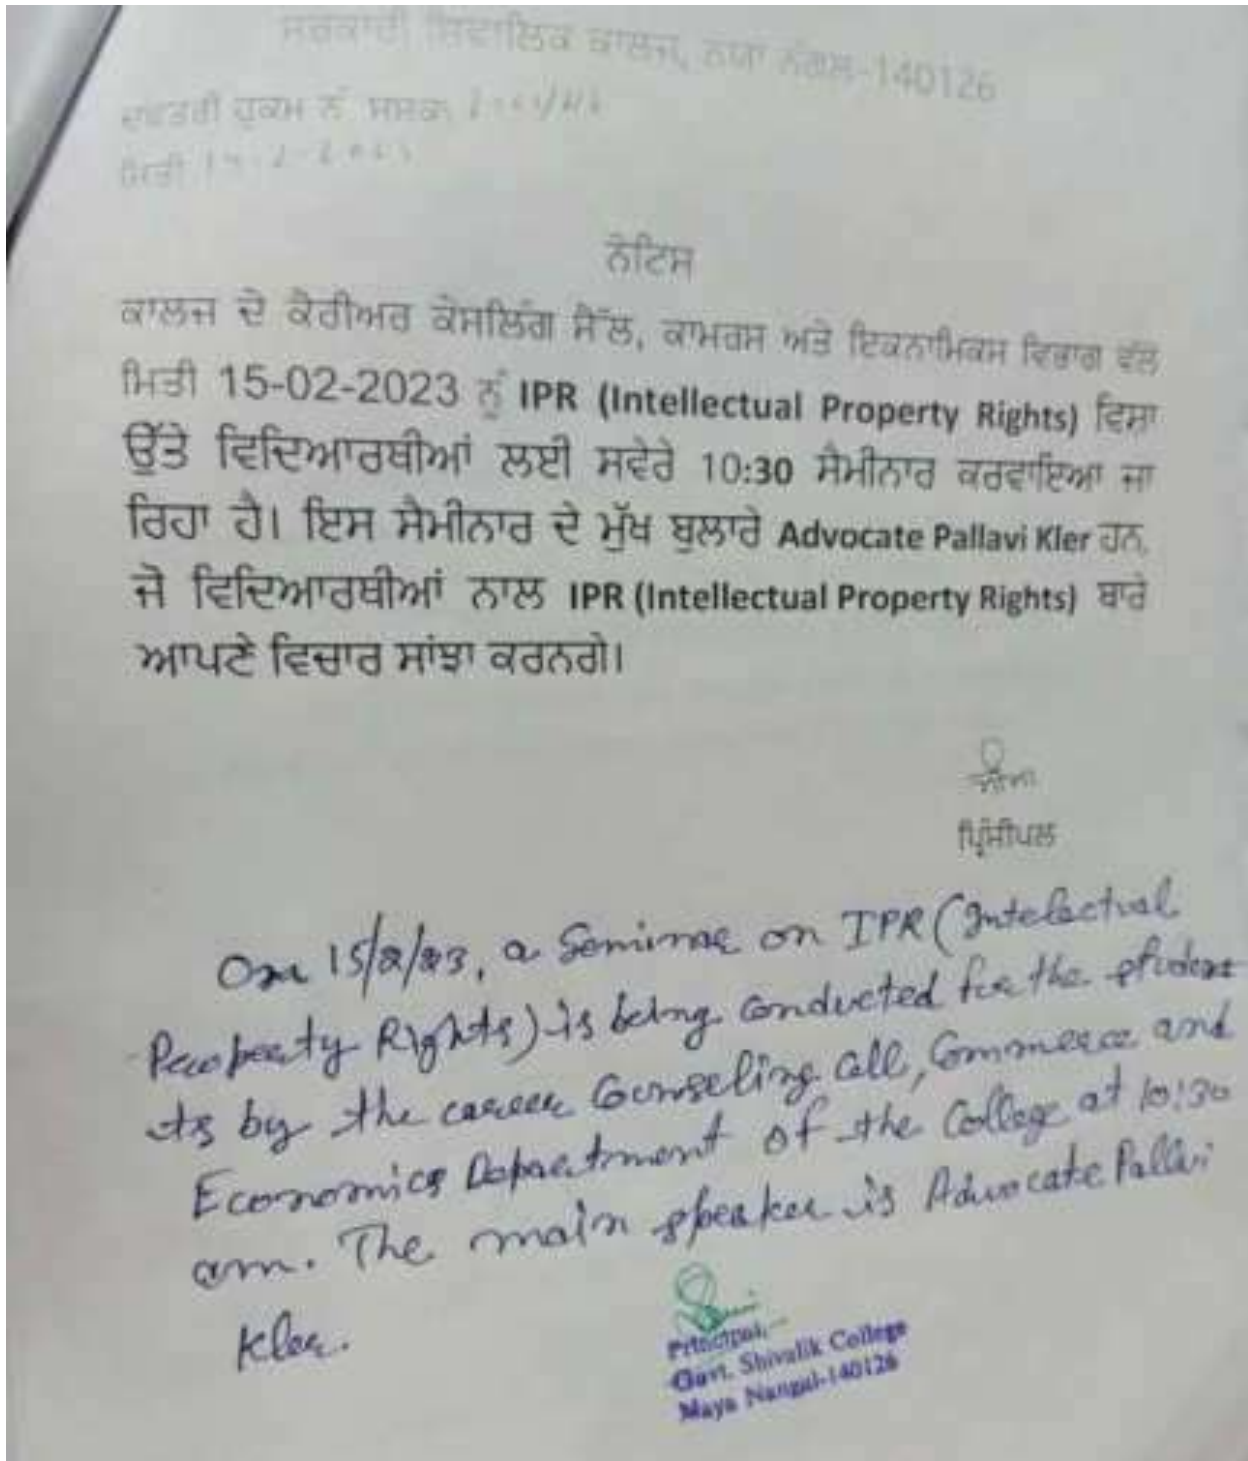 ਸਰਕਾਰੀ ਸ਼ਿਵਾਲਿਕ ਕਾਲਜ, ਨਯਾ ਨੰਗਲ-140126
ਦਫਤਰੀ ਹੁਕਮ ਨੰ
ਮਿਤੀ
ਨੋਟਿਸ
ਕਾਲਜ ਦੇ ਕੈਰੀਅਰ ਕੋਸਲਿੰਗ ਸੈੱਲ, ਕਾਮਰਸ ਅਤੇ ਇਕਨਾਮਿਕਸ ਵਿਭਾਗ ਵੱਲੋ
ਮਿਤੀ 15-02-2023 ਨੂੰ IPR (Intellectual Property Rights) ਵਿਸ਼ਾ
ਉੱਤੇ ਵਿਦਿਆਰਥੀਆਂ ਲਈ ਸਵੇਰੇ 10:30 ਸੈਮੀਨਾਰ ਕਰਵਾਇਆ ਜਾ
ਰਿਹਾ ਹੈ। ਇਸ ਸੈਮੀਨਾਰ ਦੇ ਮੁੱਖ ਬੁਲਾਰੇ Advocate Pallavi Kler ਹਨ,
ਜੋ ਵਿਦਿਆਰਥੀਆਂ ਨਾਲ IPR (Intellectual Property Rights) ਬਾਰੇ
ਆਪਣੇ ਵਿਚਾਰ ਸਾਂਝਾ ਕਰਨਗੇ।
ਪ੍ਰਿੰਸੀਪਲ
On 15/2/23, a Seminar on IPR (Intelectual
Property Rights) is being conducted for the student
ts by the career Counseling Cell, Commerce and
Economics Department of the College at 10:30
am. The main speaker is Advocate Pallavi
Kler.
Principal,
Govt. Shivalik College
Maya Nangal-140126